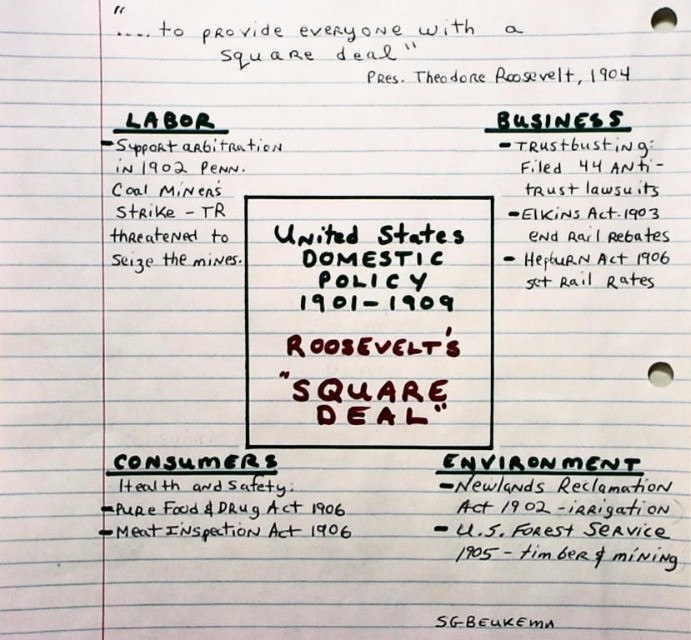 "
.... to provide everyone with a
square deal"
Pres. Theodore Roosevelt, 1904
LABOR
- Support arbitration
in 1902 Penn.
Coal Miners'
Strike - TR
threatened to
seize the mines.
BUSINESS
- Trustbusting:
Filed 44 Anti-
trust lawsuits
- Elkins Act-1903
end Rail Rebates
- Hepburn Act 1906
set Rail Rates
United States
DOMESTIC
POLICY
1901-1909
ROOSEVELT'S
"SQUARE
DEAL"
CONSUMERS
Health and Safety:
- Pure Food & Drug Act 1906
- Meat Inspection Act 1906
ENVIRONMENT
- Newlands Reclamation
Act 1902 - irrigation
- U.S. Forest Service
1905 - timber & mining
SGBEUKEMA